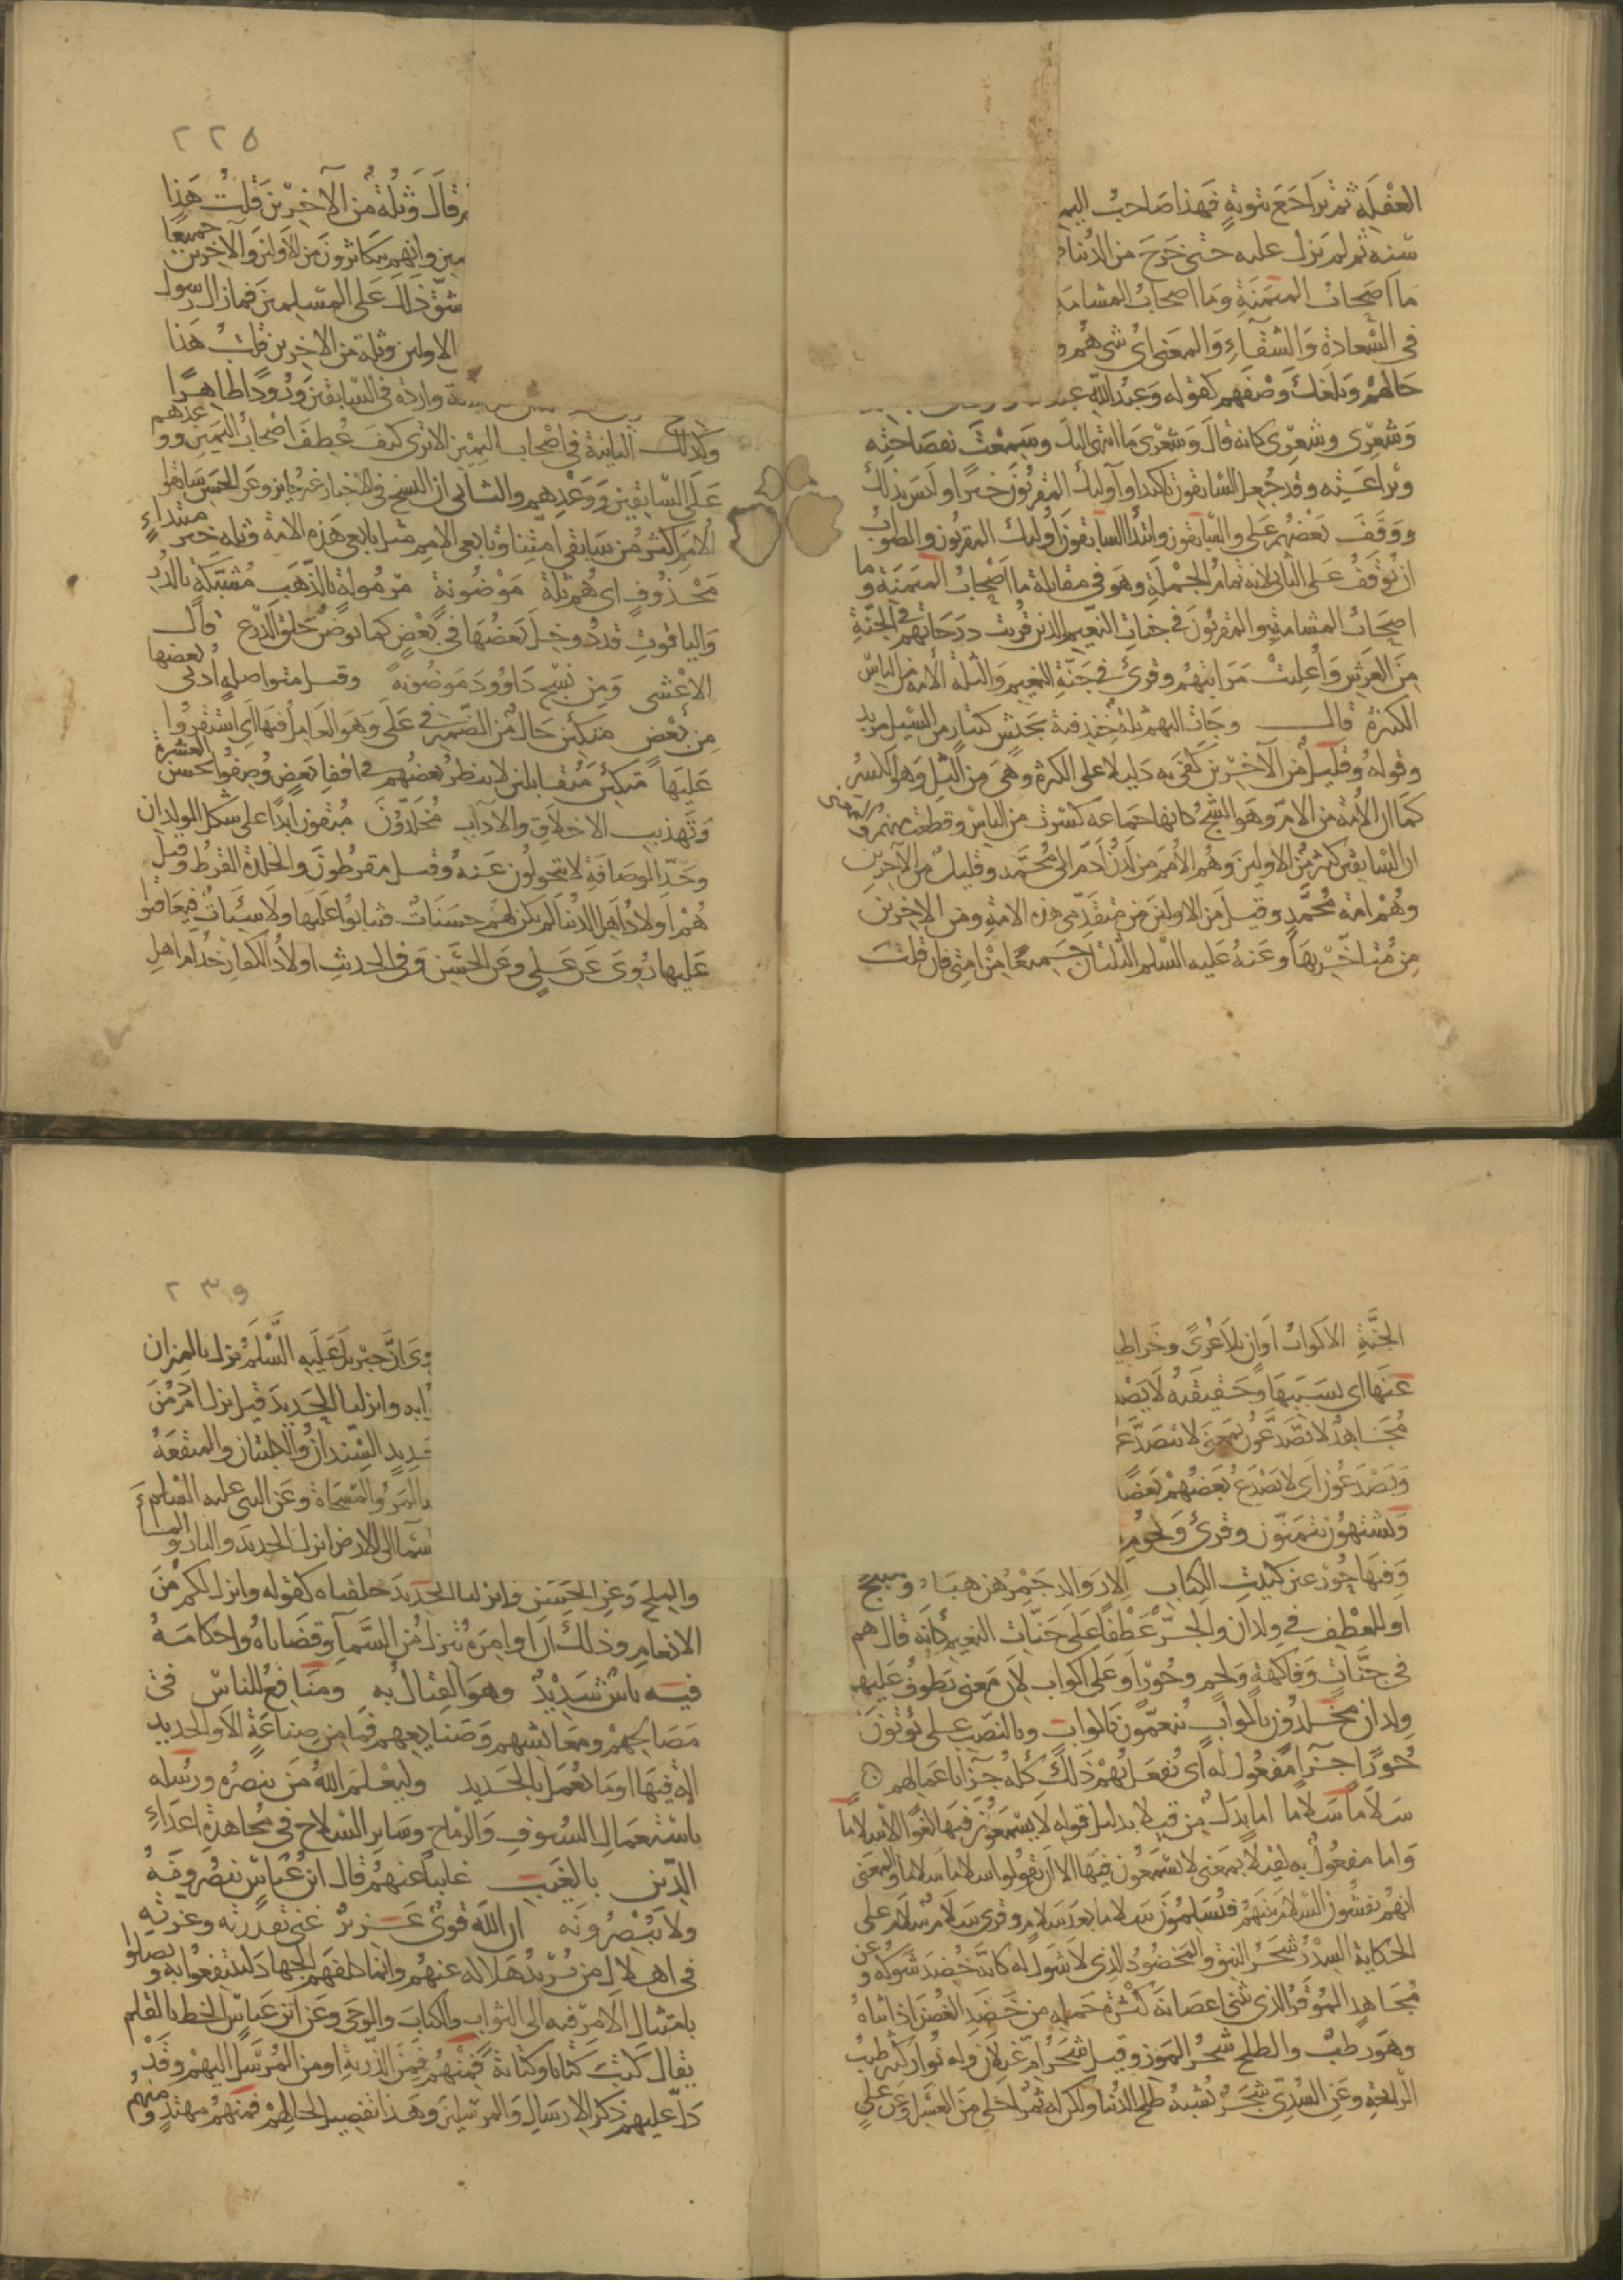 الغفلة ثم تراجع بتوبة فهذا صاحب اليم
سنه ثم لم يزل عليه حتى خرج من الدنيا
ما اصحاب الميمنة وما اصحاب المشامة
في السعادة والشقآء والمعنى اي شي هم و
حالهم وبلغك وصفهم كقوله وعبد الله عبد
وشعري وشعري كانه قال وشعري ما انتهى اليك وسمعت بفصاحته
وبراعته وقد جعل السابقون تاكيدا واولئك المقربون خبرا وليس بذلك
ووقف بعضهم على والسابقون وابتدا السابقون اولئك المقربون والصواب
ان يوقف على الثاني لانه تمام الجملة وهو في مقابلة ما اصحاب الميمنة وما
اصحاب المشامة والمقربون في جنات النعيم الذين قربت درجاتهم في الجنة
من العرش واعليت مراتبهم وقرئ في جنة النعيم والثلة الامة من الناس
الكثيرة قال وجات اليهم ثلة خندفية بجيش كتيار من السيل مزبد
وقوله وقليل من الآخرين كفى به دليلا على الكثرة وهي من الثل وهو الكسر
كما ان الامة من الام وهو الشج كانها جماعة كسرت من الناس وقطعت منهم
ان السابقين كثير من الاولين وهم الامم من لدن آدم الى محمد وقليل من الآخرين
وهم امة محمد وقيل من الاولين من متقدمي هذه الامة ومن الاخرين
من متاخريها وعنه عليه السلم الثلتان جميعا من امتي فان قلت
٢٢٥
قال وثلة من الآخرين قلت هذا
مين وانهم يتكاثرون من الاولين والآخرين جميعا
شق ذلك على المسلمين فما زال رسول
الاولين وثلة من الآخرين قلت هذا
ية واردة في السابقين ورودا ظاهرا
وكذلك الثانية في اصحاب اليمين الا ترى كيف عطف اصحاب اليمين ووعدهم
على السابقين ووعدهم والثاني ان النسخ في الاخبار غير جايز وعن الحسن سابقوا
الامم اكثر من سابقي امتنا وتابعي الامم مثل تابعي هذه الامة وثلة خبر مبتداء
محذوف اي هم ثلة موضونة مرمولة بالذهب مشبكة بالدر
والياقوت قد دوخل بعضها في بعض كما توضن حلق الدرع قال
الاعشى ومن نسج داوود موضونة وقيل متواصلة ادنى بعضها
من بعض متكئين حال من الضمير في على وهو العامل فيها اي استقروا
عليها متكئين متقابلين لا ينظر بعضهم في اقفا بعض وصفوا بحسن العشرة
وتهذيب الاخلاق والآداب مخلدون مبقون ابدا على شكل الولدان
وحد الوصافة لا يتحولون عنه وقيل مقرطون والخلدة القرط وقيل
هم اولاد اهل الدنيا لم يكن لهم حسنات فيثابوا عليها ولا سيئات فيعاقبوا
عليها روي عن علي وعن الحسن وفي الحديث اولاد الكفار خدام اهل
الجنة الاكواب اوان بلا عرى وخراطي
عنها اي بسببها وحقيقته لا يصد
مجاهد لا يصدعون بمعنى لا يتصدع
ويصدعون اي لا يصدع بعضهم بعضا
ويشتهون يتمنون وقرئ ولحوم
وفيها حور عين كبيت الكتاب الا رواكد جمرهن هباء ومشجج
او للعطف في ولدان والجر عطفا على جنات النعيم كانه قال هم
في جنات وفاكهة ولحم وحور او على اكواب لان معنى يطوف عليهم
ولدان مخلدون باكواب ينعمون باكواب وبالنصب على يؤتون
حورا جزآء مفعول له اي يفعل بهم ذلك كله جزآء باعمالهم
سلاما سلاما اما بدل من قيلا بدليل قوله لا يسمعون فيها لغوا الا سلاما
واما مفعول به لقيلا بمعنى لا يسمعون فيها الا ان يقولوا سلاما سلاما والمعنى
انهم يفشون السلام بينهم فيسلمون سلاما بعد سلام وقرئ سلام سلام على
الحكاية السدر شجر النبق والمخضود الذي لا شوك له كانه خضد شوكه وعن
مجاهد الموقر الذي تثنى اغصانه كثرة حمله من خضد الغصن اذا ثناه
وهو رطب والطلح شجر الموز وقيل شجر ام غيلان وله نوار كثير طيب
الرائحة وعن السدي شجر يشبه طلح الدنيا ولكن له ثمر احلى من العسل وعن علي
٢٣٩
وي ان جبريل عليه السلم نزل بالميزان
وانزلنا الحديد قيل نزل آدم من
حديد السندان والكلبتان والميقعة
المر والمسحاة وعن النبي عليه السلم
السماء الى الارض انزل الحديد والنار والماء
والملح وعن الحسن وانزلنا الحديد خلقناه كقوله وانزل لكم من
الانعام وذلك ان اوامره تنزل من السمآء وقضاياه واحكامه
فيه باس شديد وهو القتال به ومنافع للناس في
مصالحهم ومعايشهم وصنايعهم فما من صناعة الا والحديد
آلة فيها او ما يعمل بالحديد وليعلم الله من ينصره ورسله
باستعمال السيوف والرماح وساير السلاح في مجاهدة اعداء
الدين بالغيب غايبا عنهم قال ابن عباس ينصرونه
ولا يبصرونه ان الله قوي عزيز غني بقدرته وعزته
في اهلاك من يريد هلاكه عنهم وانما كلفهم الجهاد لينتفعوا به ويصلوا
بامتثال الامر فيه الى الثواب والكتاب والوحي وعن ابن عباس الخط بالقلم
يقال كتب كتابا وكتابة فمنهم فمن الذرية او من المرسل اليهم وقد
دل عليهم ذكر الارسال والمرسلين وهذا تفصيل لحالهم فمنهم مهتد ومنهم